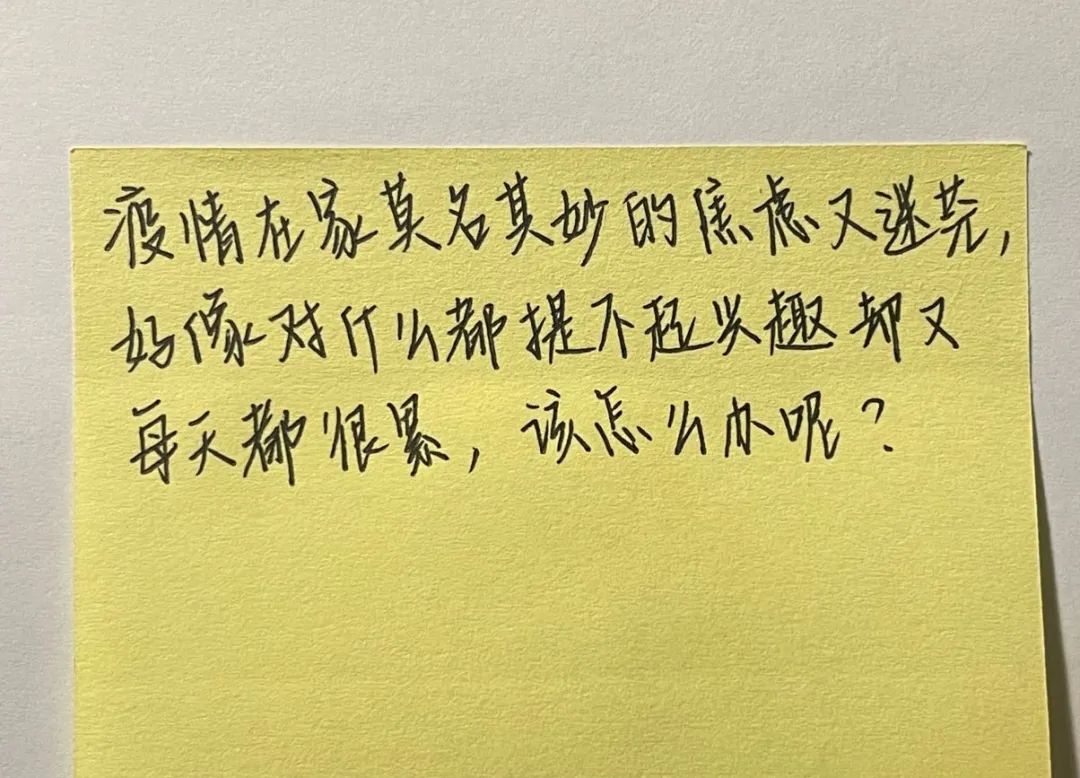 疫情在家莫名其妙的焦虑又迷茫，
好像对什么都提不起兴趣却又
每天都很累，该怎么办呢？